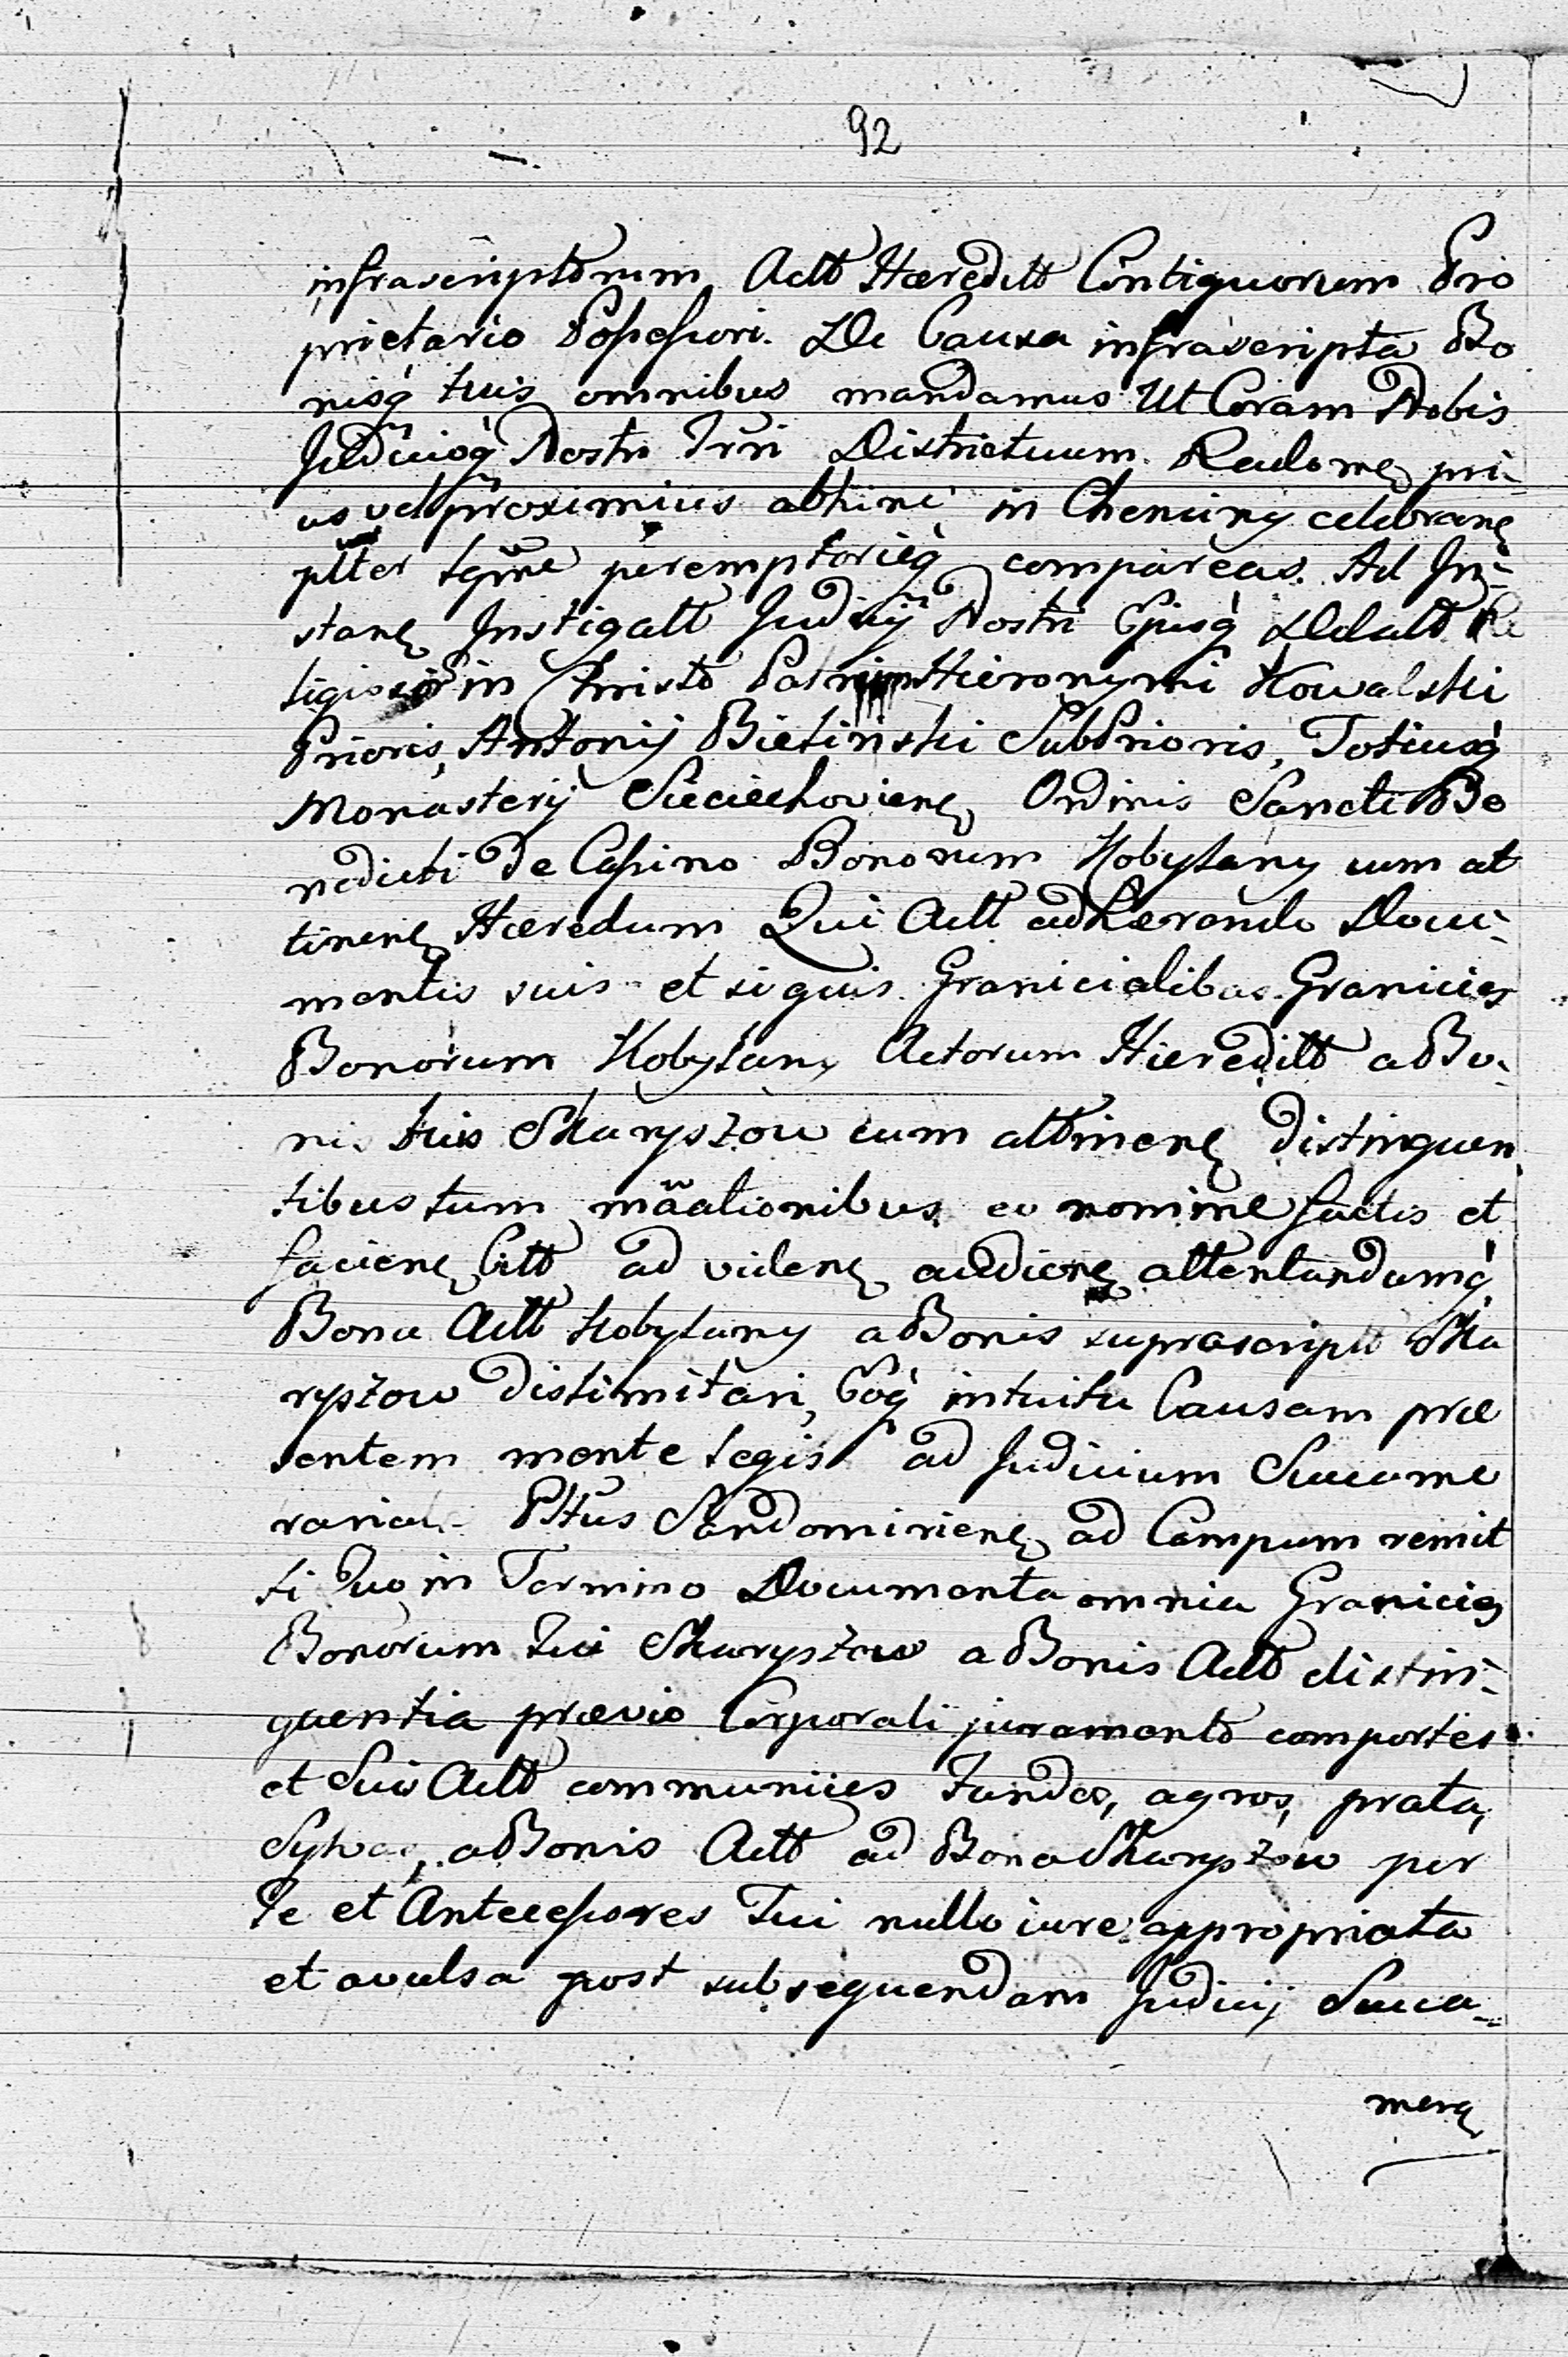 92
infrascriptorum Actt Hæreditt Contiguorum Pro
prietario Possessori. De Causa infrascripta Bo
nisq́ tuis omnibus mandamus Ut Coram Nobis
Judicioq́ Nostr Trri Districtuum Radomę pri-
us vel proximius abhinc in Chenciny celebranę
pltter tqme peremptorieq́ compareas. Ad In-
stanę Instigatt Judicij Nostri Ejusq́ Delatt Re
ligiosor in Christo Patrum Hieronymi Kowalski
Prioris, Antonij Bielinski SubPrioris, Totiusq́
Monasterij Sieciechovienę Ordinis Sancti Be
nedicti de Cassino Bonorum Kobylany cum at
tinenę Hæredum Qui Actt adhærendo Docu-
mentis suis et siquis Granicialibus Granicies
Bonorum Kobylany Actorum Hæreditt a Bo-
nis tuis Skaryszow cum attinenę distinguen
tibus tum mãationibus eo nomine factis et
facienę Citt ad videnę audienę attentandumq́
Bona Actt Kobylany a Bonis suprascriptt Ska
ryszow dislimitari, Eoq́ intuitu Causam præ
sentem mente legis ad Judicium Succame
rariale Pttus Sandomirienę ad Campum remit
ti Quo in Termino Documenta omnia Granicies
Bonorum Tui Skaryszow a Bonis Actt distin-
guentia prævio Corporali juramento comportes
et Suis Actt communices fundos, agros, prata,
Sylvas, a Bonis Actt ad Bona Skaryszow per
Te et Antecessores Tui nullo iure appropriata
et avulsa post subsequendam Judicij Succa-
merę